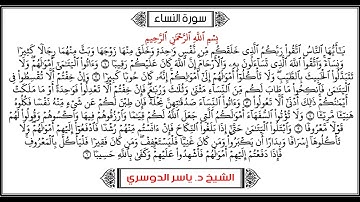 سورة النساء
بِسْمِ ٱللَّهِ ٱلرَّحْمَٰنِ ٱلرَّحِيمِ
يَٰٓأَيُّهَا ٱلنَّاسُ ٱتَّقُوا۟ رَبَّكُمُ ٱلَّذِى خَلَقَكُم مِّن نَّفْسٍ وَٰحِدَةٍ وَخَلَقَ مِنْهَا زَوْجَهَا وَبَثَّ مِنْهُمَا رِجَالًا كَثِيرًا
وَنِسَآءً وَٱتَّقُوا۟ ٱللَّهَ ٱلَّذِى تَسَآءَلُونَ بِهِۦ وَٱلْأَرْحَامَ إِنَّ ٱللَّهَ كَانَ عَلَيْكُمْ رَقِيبًا ۝١ وَءَاتُوا۟ ٱلْيَتَٰمَىٰٓ أَمْوَٰلَهُمْ وَلَا
تَتَبَدَّلُوا۟ ٱلْخَبِيثَ بِٱلطَّيِّبِ وَلَا تَأْكُلُوٓا۟ أَمْوَٰلَهُمْ إِلَىٰٓ أَمْوَٰلِكُمْ إِنَّهُۥ كَانَ حُوبًا كَبِيرًا ۝٢ وَإِنْ خِفْتُمْ أَلَّا تُقْسِطُوا۟ فِى
ٱلْيَتَٰمَىٰ فَٱنكِحُوا۟ مَا طَابَ لَكُم مِّنَ ٱلنِّسَآءِ مَثْنَىٰ وَثُلَٰثَ وَرُبَٰعَ فَإِنْ خِفْتُمْ أَلَّا تَعْدِلُوا۟ فَوَٰحِدَةً أَوْ مَا مَلَكَتْ
أَيْمَٰنُكُمْ ذَٰلِكَ أَدْنَىٰٓ أَلَّا تَعُولُوا۟ ۝٣ وَءَاتُوا۟ ٱلنِّسَآءَ صَدُقَٰتِهِنَّ نِحْلَةً فَإِن طِبْنَ لَكُمْ عَن شَىْءٍ مِّنْهُ نَفْسًا فَكُلُوهُ
هَنِيٓـًٔا مَّرِيٓـًٔا ۝٤ وَلَا تُؤْتُوا۟ ٱلسُّفَهَآءَ أَمْوَٰلَكُمُ ٱلَّتِى جَعَلَ ٱللَّهُ لَكُمْ قِيَٰمًا وَٱرْزُقُوهُمْ فِيهَا وَٱكْسُوهُمْ وَقُولُوا۟ لَهُمْ
قَوْلًا مَّعْرُوفًا ۝٥ وَٱبْتَلُوا۟ ٱلْيَتَٰمَىٰ حَتَّىٰٓ إِذَا بَلَغُوا۟ ٱلنِّكَاحَ فَإِنْ ءَانَسْتُم مِّنْهُمْ رُشْدًا فَٱدْفَعُوٓا۟ إِلَيْهِمْ أَمْوَٰلَهُمْ وَلَا
تَأْكُلُوهَآ إِسْرَافًا وَبِدَارًا أَن يَكْبَرُوا۟ وَمَن كَانَ غَنِيًّا فَلْيَسْتَعْفِفْ وَمَن كَانَ فَقِيرًا فَلْيَأْكُلْ بِٱلْمَعْرُوفِ
فَإِذَا دَفَعْتُمْ إِلَيْهِمْ أَمْوَٰلَهُمْ فَأَشْهِدُوا۟ عَلَيْهِمْ وَكَفَىٰ بِٱللَّهِ حَسِيبًا ۝٦
الشيخ د. ياسر الدوسري